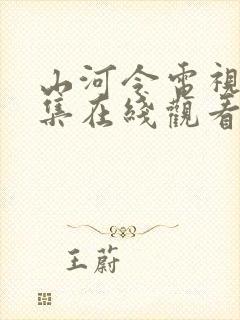 山河令電視
集在綫觀看
王蔚